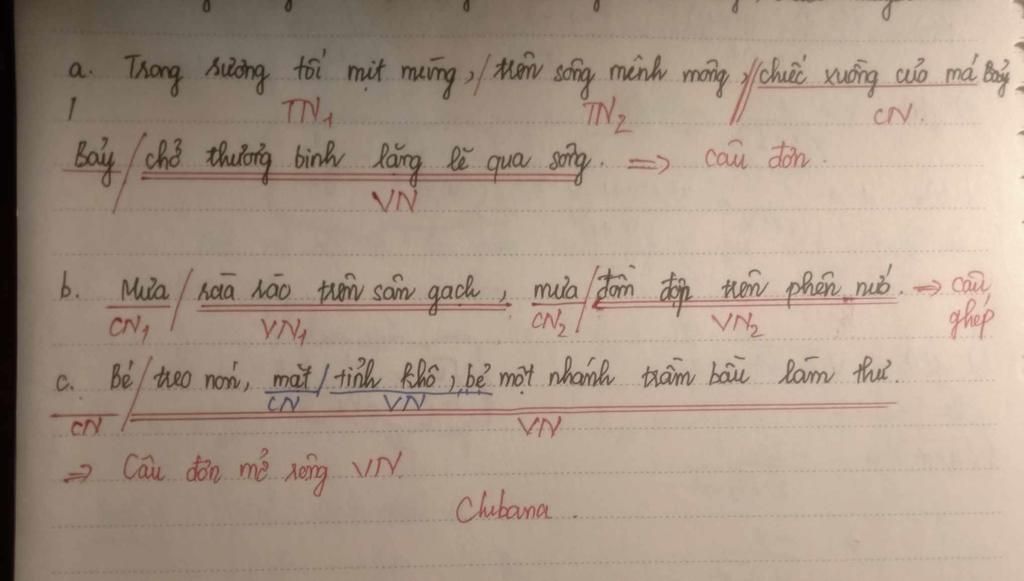 a. Trong sương tối mịt mùng,/ trên sông mênh mông,// chiếc xuồng của má Bảy
TN1 TN2 CN.
Bảy / chở thương binh lặng lẽ qua sông. => câu đơn.
VN
b. Mưa / rào rào trên sân gạch, mưa / đồm độp trên phên nứa. => câu
CN1 VN1 CN2 VN2 ghép
c. Bé / treo nón, mặt / tỉnh khô, bẻ một nhánh trâm bầu làm thước.
CN VN
CN VN
=> Câu đơn mở rộng VN.
Chibana.